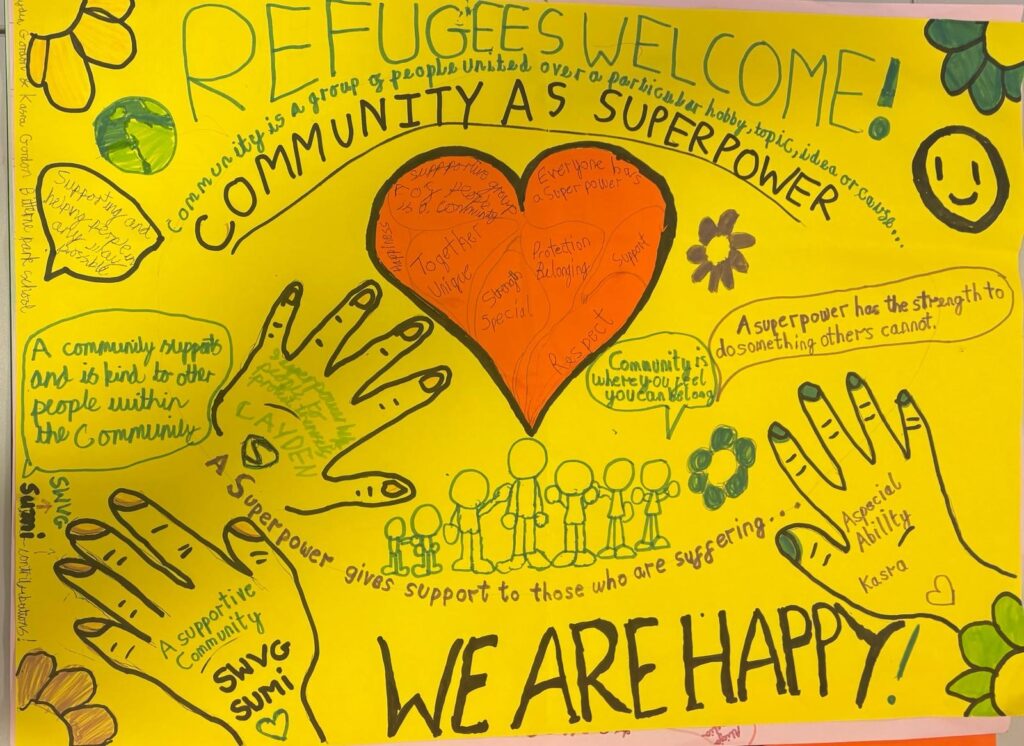 REFUGEES WELCOME!
Community is a group of people united over a particular hobby, topic, idea or cause...
COMMUNITY AS SUPERPOWER
Supporting and
helping people
any way
possible
A supportive group
of people
is a community
Everyone has
a superpower
Happiness
Together
Unique
Strength
Special
Protection
Belonging
Support
Respect
A superpower has the strength to
do something others cannot.
Community is
where you feel
you can belong
A community supports
and is kind to other
people within
the Community
CAYDEN
A Superpower gives support to those who are suffering...
A special
Ability
Kasra
SWVG
Sumi
-contributions!
A supportive
Community
SWVG
SUMI
WE ARE HAPPY!
Gordon & Kasra Gordon Bitterne park school